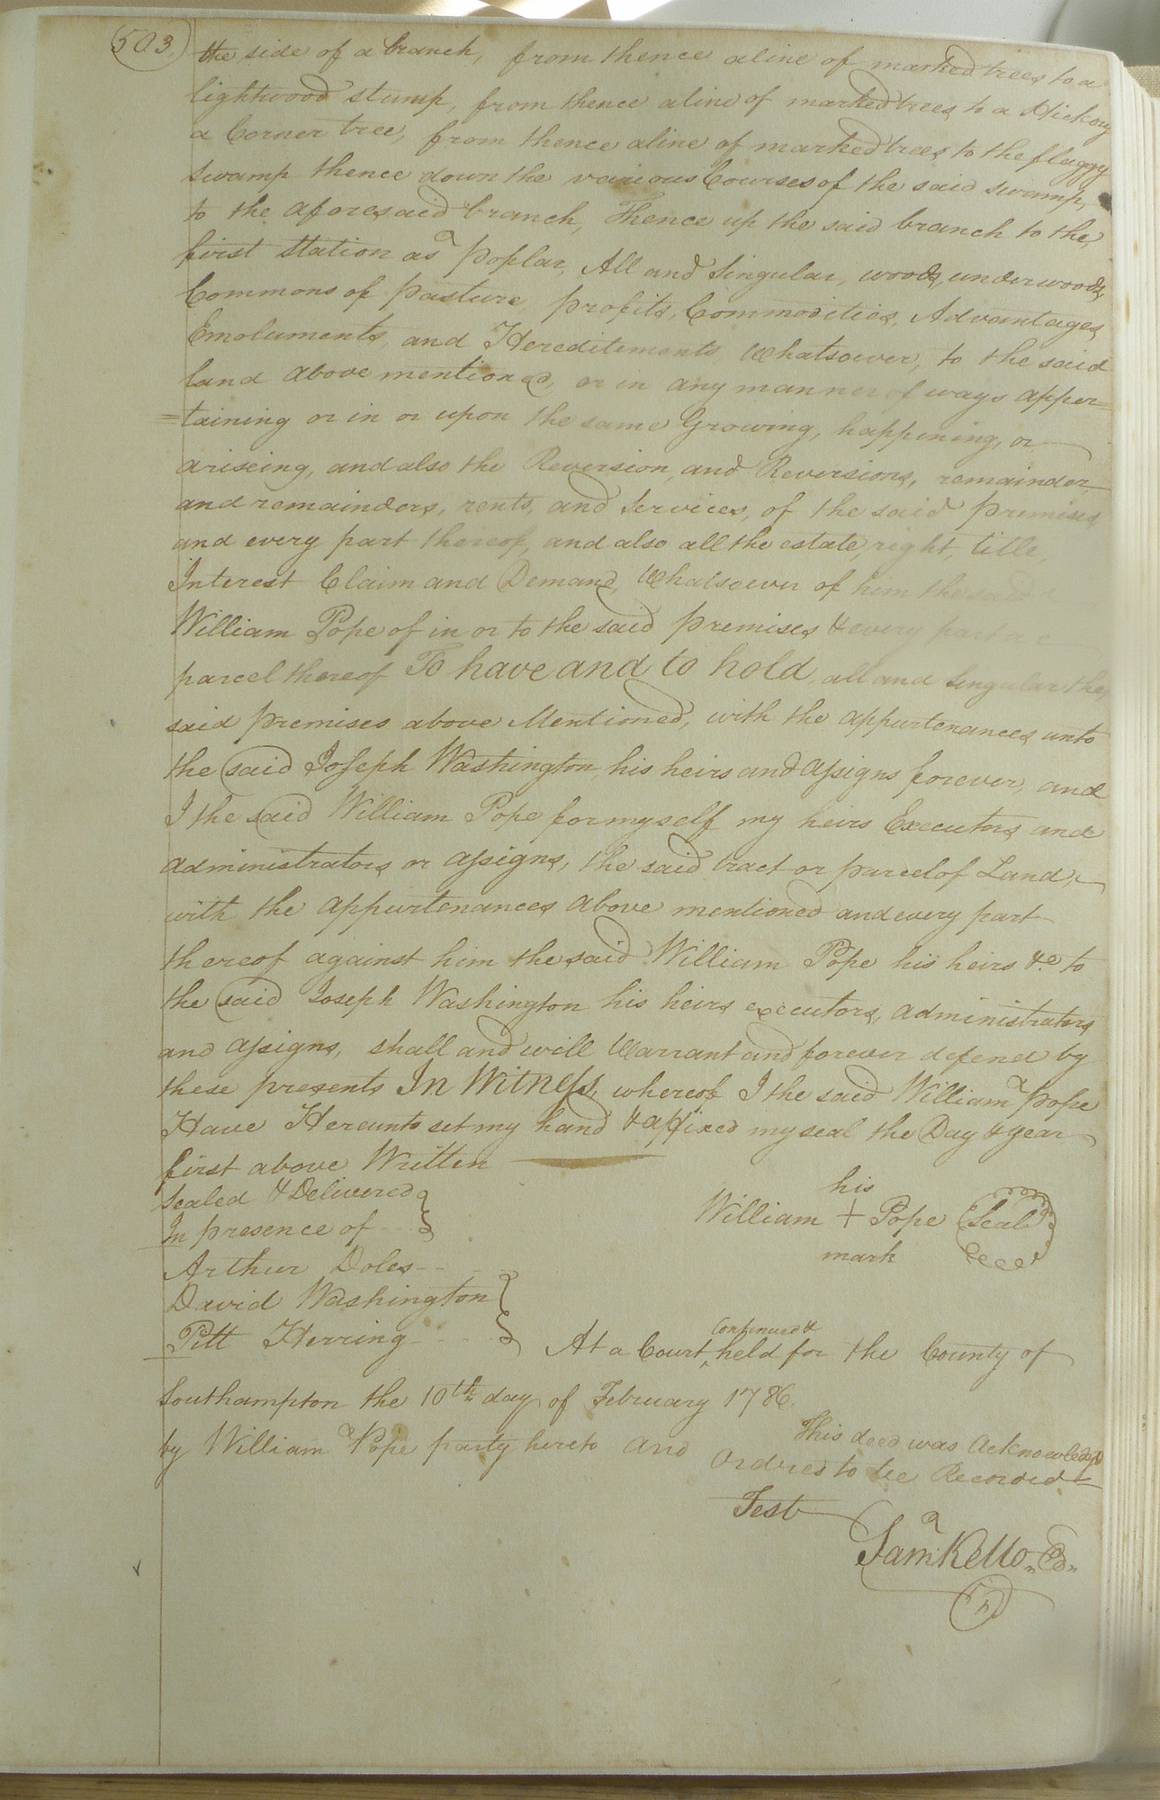 503.
the side of a branch, from thence a line of marked trees to a
lightwood stump, from thence a line of marked trees to a Hickory
a Corner tree, from thence a line of marked trees to the flaggy
Swamp thence down the various Courses of the said swamp,
to the aforesaid branch, Thence up the said branch to the
first Station as a Poplar, All and Singular, woods, underwoods,
Commons of Pasture, profits, Commodities, Advantages,
Emoluments, and Hereditements Whatsoever, to the said
land above mentioned, or in any manner of ways apper=
=taining or in or upon the same Growing, happening, or
ariseing, and also the Reversion, and Reversions, remainder,
and remainders, rents, and Services, of the said Premises
and every part thereof, and also all the estate, right, title,
Interest Claim and Demand, Whatsoever of him the said
William Pope of in or to the said Premises & every part
parcel thereof To have and to hold, all and Singular the,
said premises above Mentioned, with the appurtenances unto
the said Joseph Washington, his heirs and assigns forever, and
I the said William Pope for myself my heirs Executors, and
administrators or assigns, the said tract or parcel of Land,
with the appurtenances above mentioned and every part
thereof against him the said William Pope his heirs &c to
the said Joseph Washington his heirs executors, administrators
and assigns, shall and will Warrant and forever defend by
these presents In Witness, whereof I the said William Pope
Have Hereunto set my hand & affixed my seal the Day & year
first above Written
Sealed & Delivered
In presence of
Arthur Doles
David Washington
Pitt Herring
his
William + Pope Seal
mark
At a Court, Continued & held for the County of
Southampton the 10th day of February 1786.
This deed was Acknowledged
by William Pope party hereto and Ordred to be Recorded
Test
Saml Kello